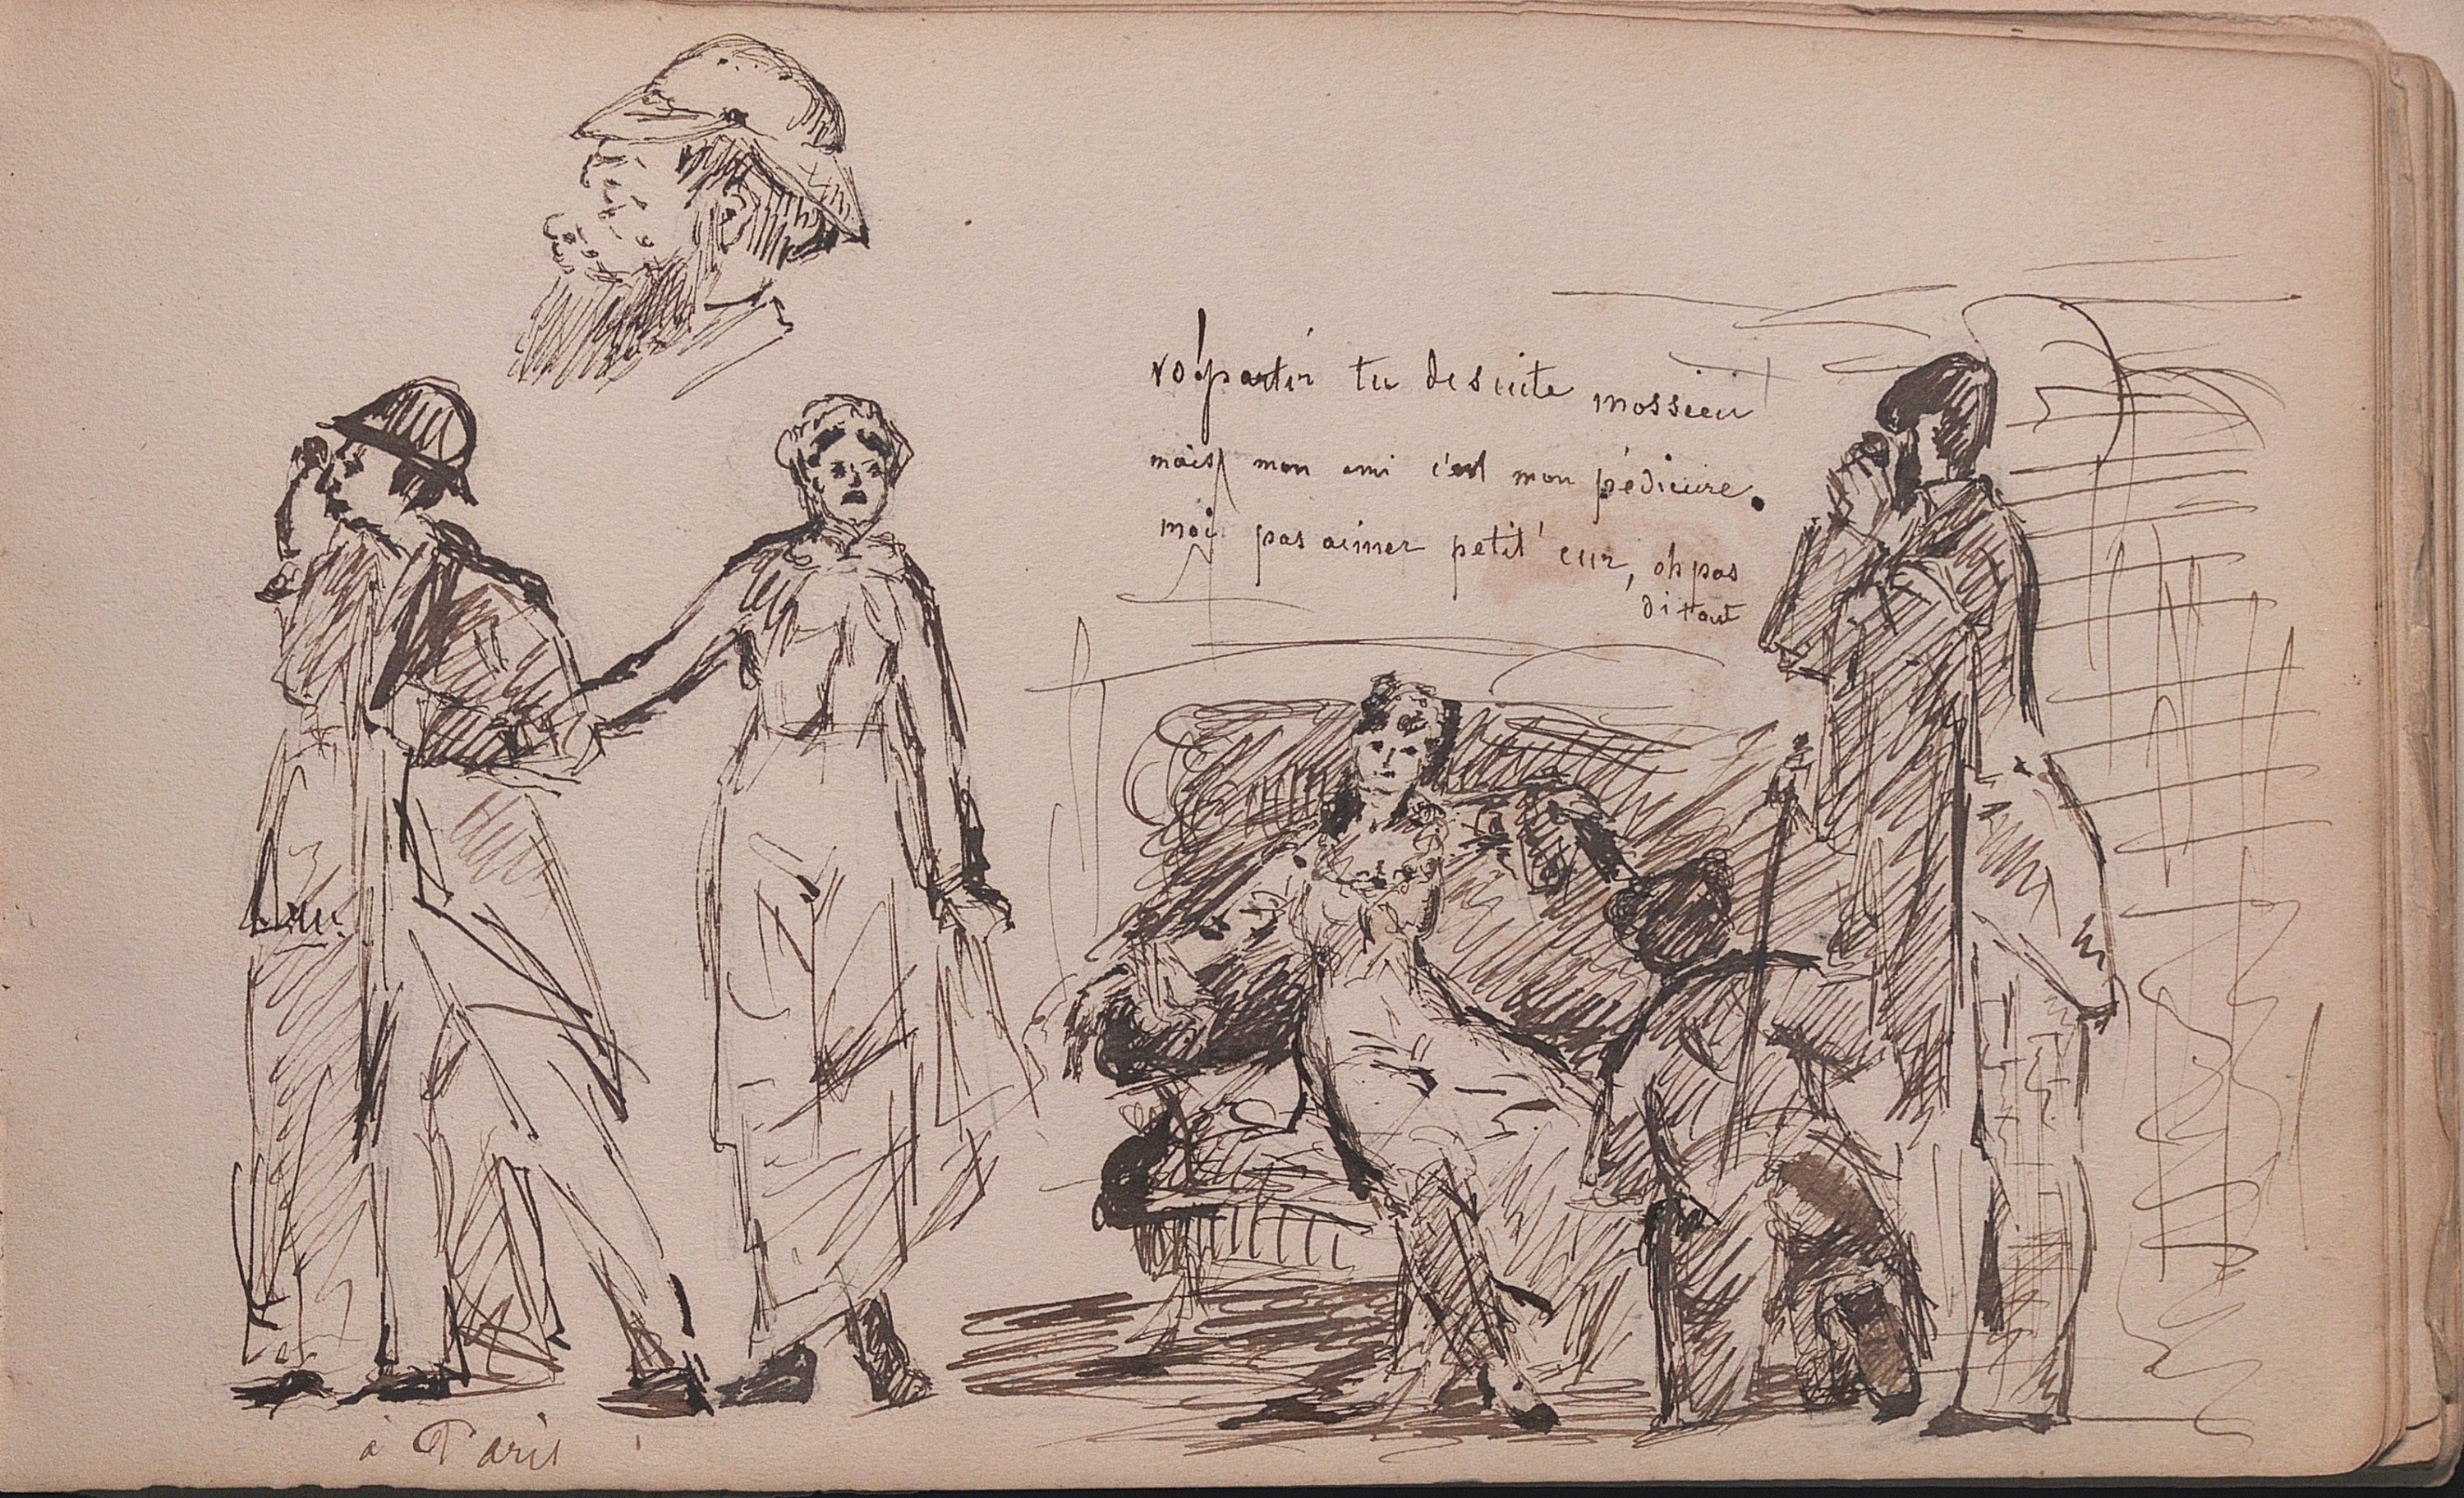 vo'partir tu desuite mossieu
mais mon ami c'est mon pédicure.
moi pas aimer petit' cur, oh pas
di tout
à Paris